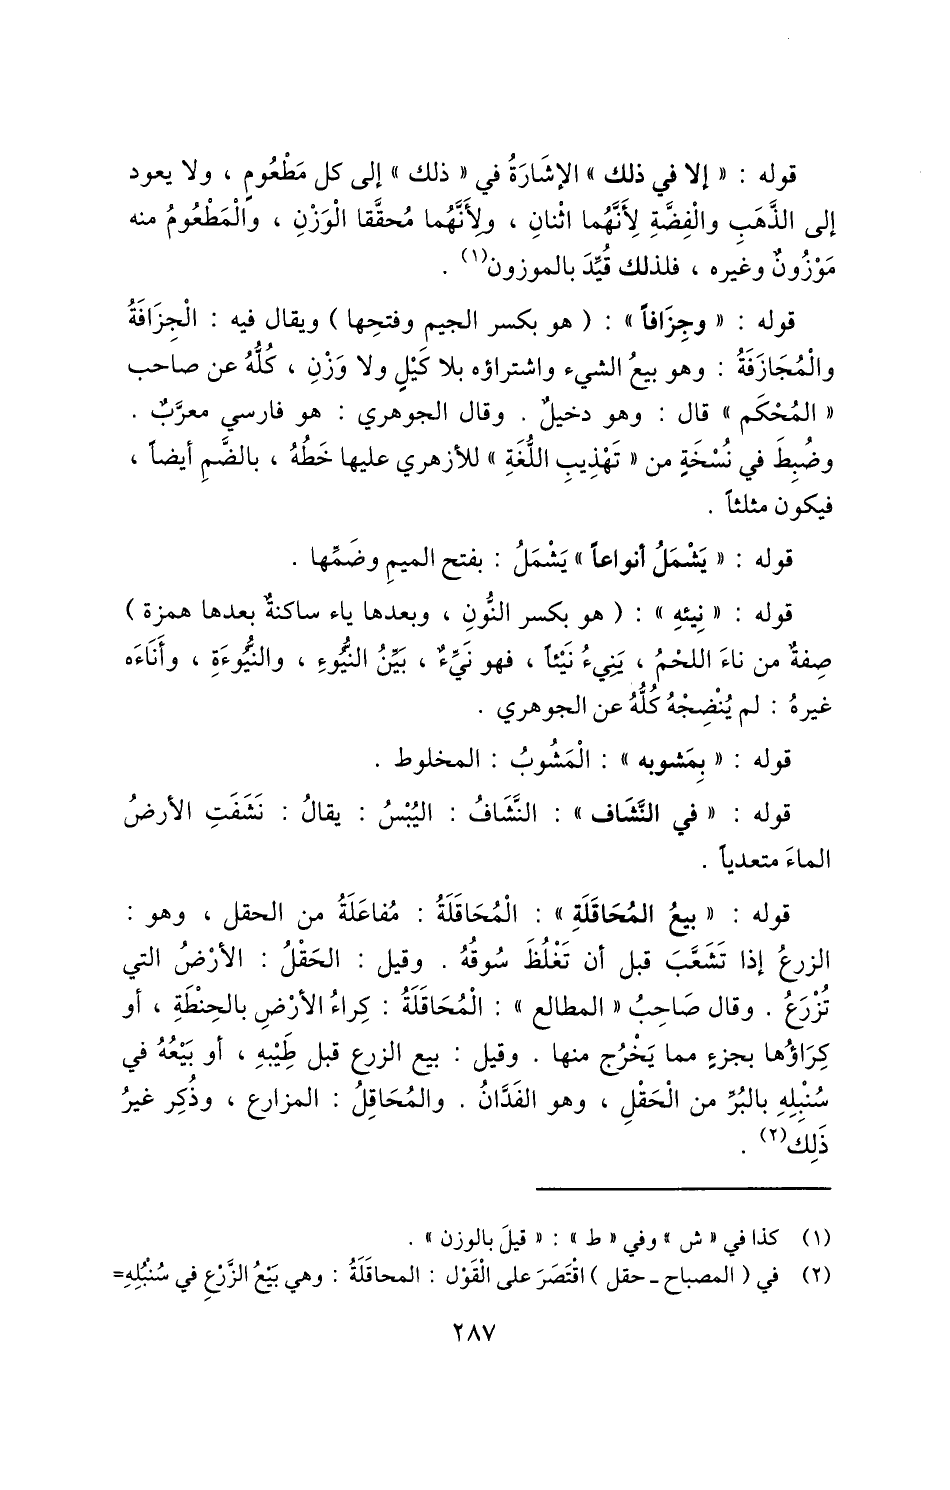 قوله : « إلا في ذلك » الإشَارَةُ في « ذلك » إلى كل مَطْعُومٍ ، ولا يعود
إلى الذَّهَبِ والْفِضَّةِ لِأَنَّهُما اثْنانِ ، ولِأَنَّهُما مُحقَّقا الْوَزْنِ ، والْمَطْعُومُ منه
مَوْزُونٌ وغيره ، فلذلك قُيِّدَ بالموزون(١) .
قوله : « وجِزَافاً » : ( هو بكسر الجيم وفتحِها ) ويقال فيه : الْجِزَافَةُ
والْمُجَازَفَةُ : وهو بيعُ الشيء واشتراؤه بلا كَيْلٍ ولا وَزْنِ ، كُلُّهُ عن صاحب
« المُحْكَم » قال : وهو دخيلٌ . وقال الجوهري : هو فارسي معرَّبٌ .
وضُبِطَ في نُسْخَةٍ من « تَهْذِيبِ اللُّغَةِ » للأزهري عليها خَطُهُ ، بالضَّمِ أيضاً ،
فيكون مثلثاً .
قوله : « يَشْمَلُ أنواعاً » يَشْمَلُ : بفتح الميمِ وضَمِّها .
قوله : « نِيئِهِ » : ( هو بكسر النُّونِ ، وبعدها ياء ساكنةٌ بعدها همزة )
صِفةٌ من ناءَ اللحْمُ ، يَنِيءُ نَيْئاً ، فهو نَيِّءٌ ، بَيِّنُ النُّيُوءِ ، والنُّيُوءَةِ ، وأَنَاءَه
غيرهُ : لم يُنْضِجْهُ كُلُّهُ عن الجوهري .
قوله : « بِمَشوبه » : الْمَشُوبُ : المخلوط .
قوله : « في النَّشَاف » : النَّشَافُ : اليُبْسُ : يقالُ : نَشَفَتِ الأرضُ
الماءَ متعدياً .
قوله : « بيعُ المُحَاقَلَةِ » : الْمُحَاقَلَةُ : مُفاعَلَةُ من الحقل ، وهو :
الزرعُ إذا تَشَعَّبَ قبل أن تَغْلُظَ سُوقُهُ . وقيل : الحَقْلُ : الأرْضُ التي
تُزْرَعُ . وقال صَاحِبُ « المطالع » : الْمُحَاقَلَةُ : كِراءُ الأرْضِ بالحِنْطَةِ ، أو
كِرَاؤُها بجزءٍ مما يَخْرُج منها . وقيل : بيع الزرع قبل طَيْبِهِ ، أو بَيْعُهُ في
سُنْبِلِهِ بالبُرِّ من الْحَقْلِ ، وهو الفَدَّانُ . والمُحَاقِلُ : المزارع ، وذُكِر غيرُ
ذَلِك(٢) .
(١) كذا في « ش » وفي « ط » : « قيلَ بالوزن » .
(٢) في ( المصباح ـ حقل ) اقْتَصَرَ على الْقَوْل : المحاقَلَةُ : وهي بَيْعُ الزَّرْعِ في سُنْبُلِهِ=
٢٨٧